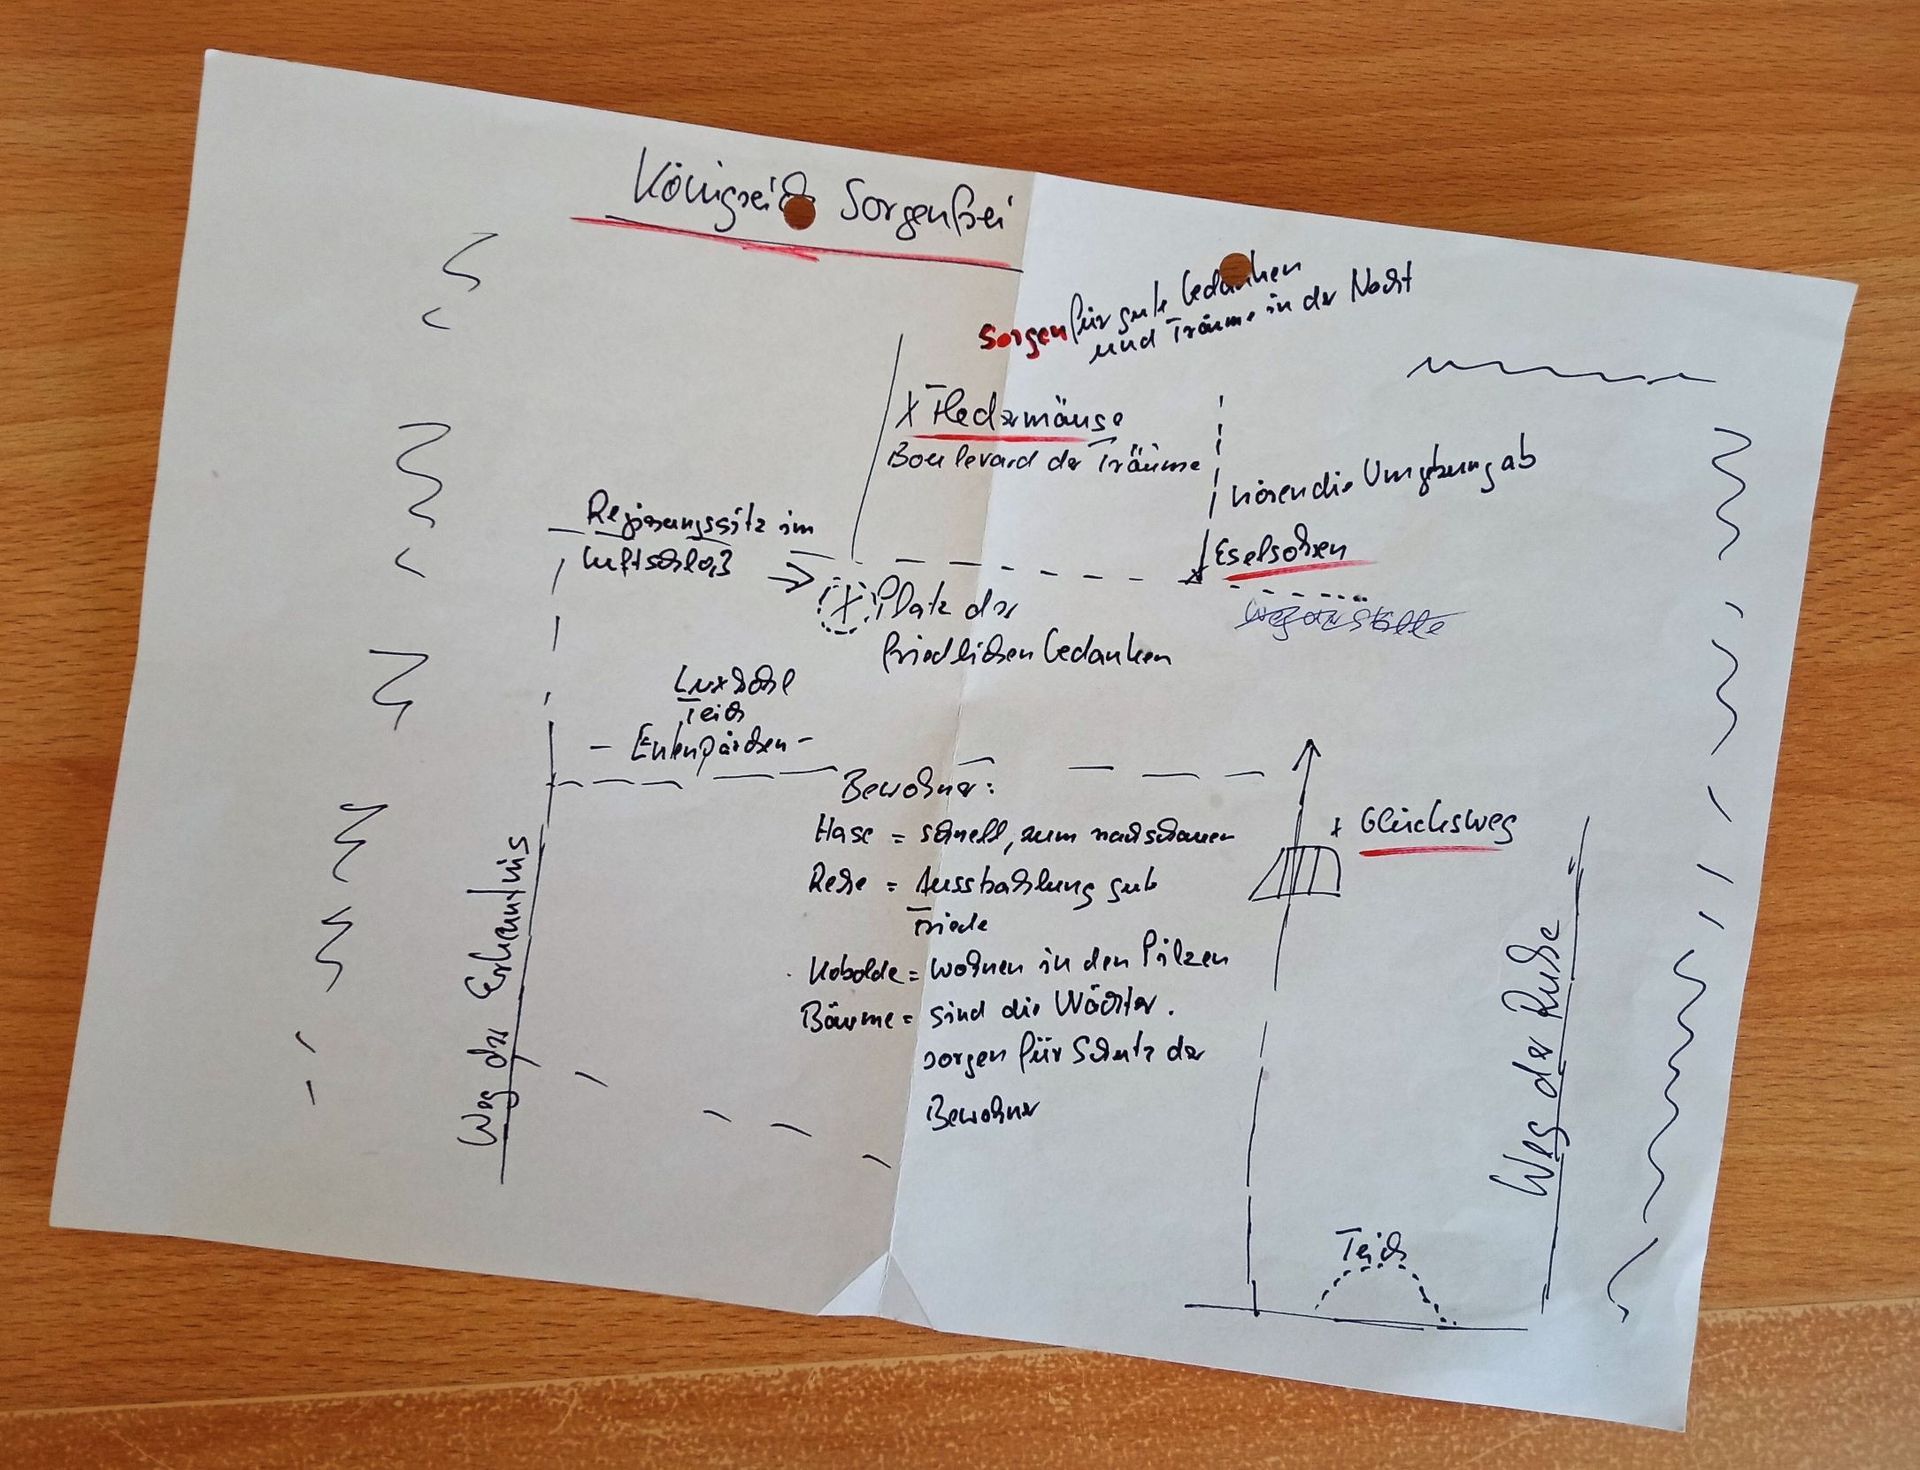 Königreich Sorgenfrei
Sorgen für gute Gedanken
und Träume in der Nacht
X Fledermäuse
Boulevard der Träume
hören die Umgebung ab
Regierungssitz im
Luftschloß
Eselsohren
X Platz der
friedlichen Gedanken
Weg der Stille
Teich
- Entenpärchen -
Bewohner:
Hase = schnell, zum nachschauen
Rehe = Ausstrahlung gute
Friede
Kobolde = wohnen in den Pilzen
Bäume = sind die Wächter.
sorgen für Schutz der
Bewohner
x Glücksweg
Weg der Erkenntnis
Weg der Ruhe
Teich